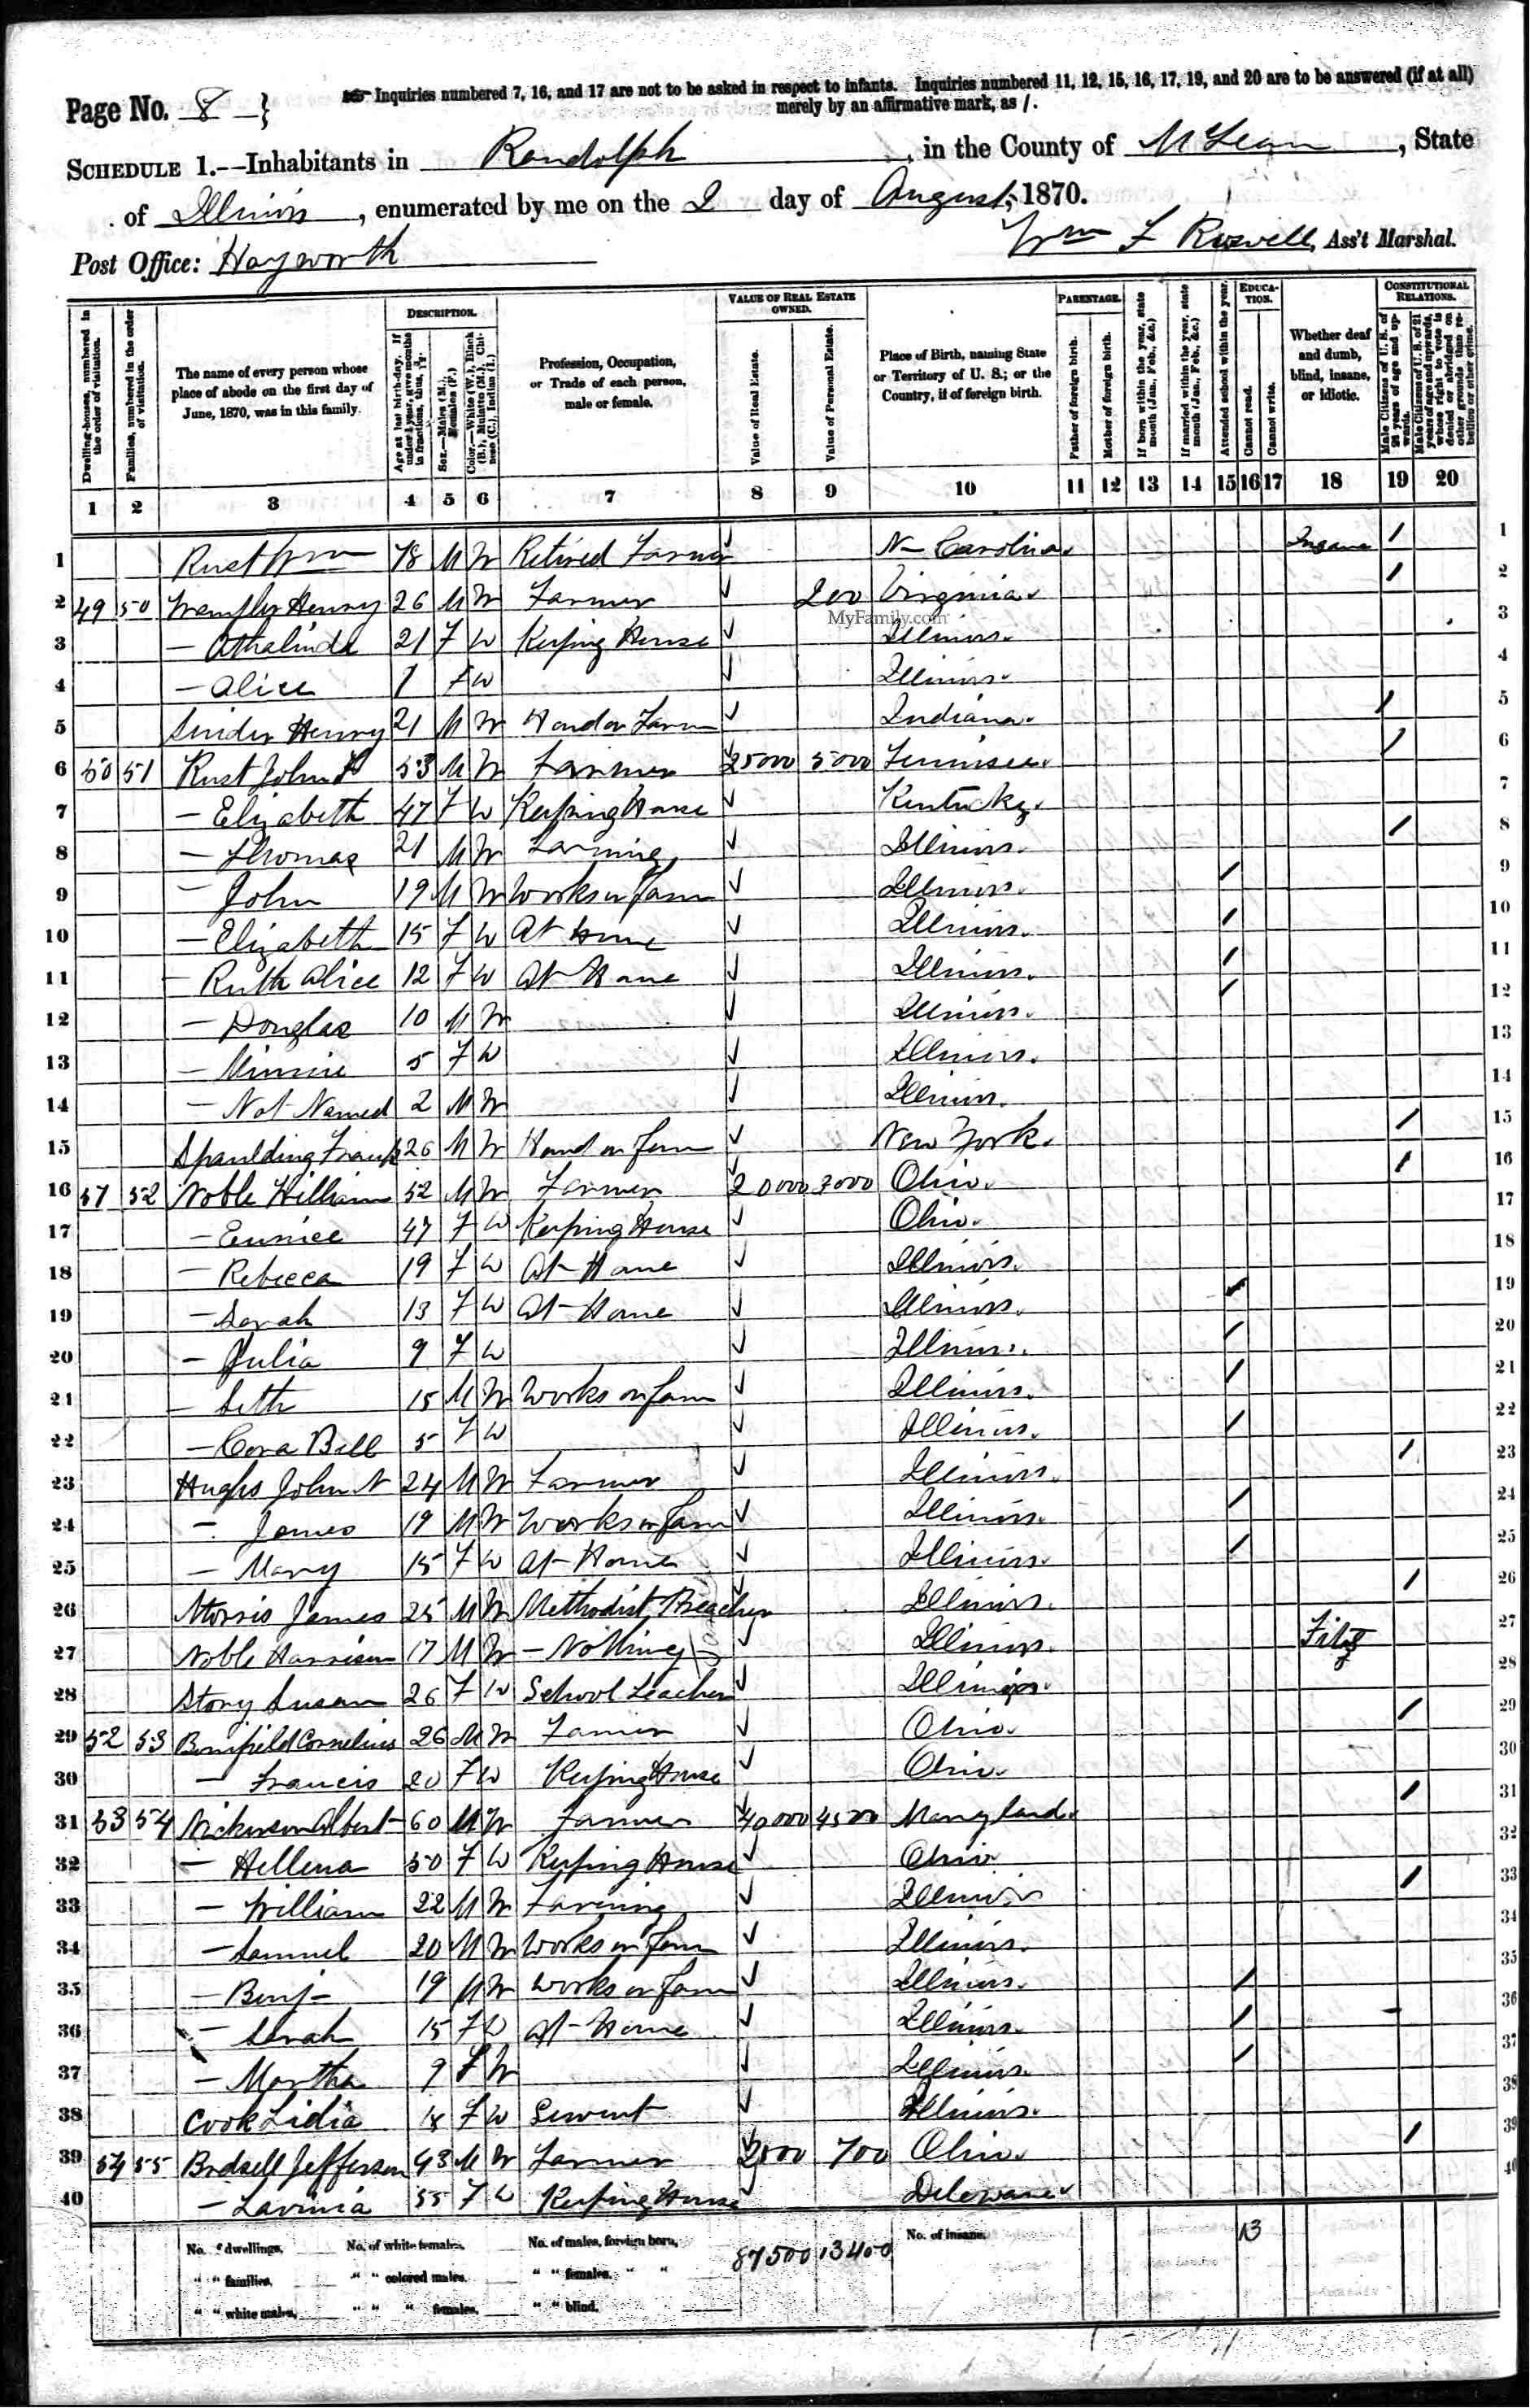 Page No. 8 }
Inquiries numbered 7, 16, and 17 are not to be asked in respect to infants. Inquiries numbered 11, 12, 15, 16, 17, 19, and 20 are to be answered (if at all)
merely by an affirmative mark, as /.
SCHEDULE 1.—Inhabitants in Randolph, in the County of McLean, State
of Illinois, enumerated by me on the 2 day of August, 1870.
Post Office: Hayworth
Wm F Ruswell, Ass't Marshal.
Dwelling-houses, numbered in the order of visitation.
Families, numbered in the order of visitation.
The name of every person whose place of abode on the first day of June, 1870, was in this family.
DESCRIPTION.
Age at last birth-day. If under 1 year, give months in fractions, thus, 3/12.
Sex.—Males (M.), Females (F.)
Color.—White (W.), Black (B.), Mulatto (M.), Chinese (C.), Indian (I.)
Profession, Occupation, or Trade of each person, male or female.
VALUE OF REAL ESTATE OWNED.
Value of Real Estate.
Value of Personal Estate.
Place of Birth, naming State or Territory of U. S.; or the Country, if of foreign birth.
PARENTAGE.
Father of foreign birth.
Mother of foreign birth.
If born within the year, state month (Jan., Feb., &c.)
If married within the year, state month (Jan., Feb., &c.)
Attended school within the year.
EDUCATION.
Cannot read.
Cannot write.
Whether deaf and dumb, blind, insane, or idiotic.
CONSTITUTIONAL RELATIONS.
Male Citizens of U. S. of 21 years of age and upwards.
Male Citizens of U. S. of 21 years of age and upwards, whose right to vote is denied or abridged on other grounds than rebellion or other crime.
1 2 3 4 5 6 7 8 9 10 11 12 13 14 15 16 17 18 19 20
1 Rust Wm 78 M W Retired Farmer N- Carolina Insane / 1
2 49 50 Henry 26 M W Farmer 200 Virginia / 2
MyFamily.com
3 — Athalinda 21 F W Keeping House Illinois 3
4 — Alice 1 F W Illinois 4
5 Henry 21 M W Hand on Farm Indiana / 5
6 50 51 Rust John 53 M W Farmer 25000 5000 Tennisee / 6
7 — Elizabeth 47 F W Keeping House Kentucky 7
8 — Thomas 21 M W Farming Illinois / 8
9 — John 19 M W Works on farm Illinois / 9
10 — Elizabeth 15 F W At home Illinois / 10
11 — Ruth Alice 12 F W At Home Illinois / 11
12 — Douglas 10 M W Illinois / 12
13 — Minnie 5 F W Illinois 13
14 — Not Named 2 M W Illinois 14
15 Spaulding Frank 26 M W Hand on farm New York / 15
16 51 52 Noble William 52 M W Farmer 20000 3000 Ohio / 16
17 — Eunice 47 F W Keeping House Ohio 17
18 — Rebecca 19 F W At Home Illinois 18
19 — Sarah 13 F W At Home Illinois / 19
20 — Julia 9 F W Illinois / 20
21 — Seth 15 M W Works on farm Illinois / 21
22 — Cora Bell 5 F W Illinois / 22
23 Hughs John N 24 M W Farmer Illinois / 23
24 — James 19 M W Works on farm Illinois / 24
25 — Mary 15 F W At Home Illinois / 25
26 Morris James 25 M W Methodist Preacher Illinois / 26
27 Noble Harrison 17 M W — Nothing Illinois Fits 27
28 Story Susan 26 F W School Teacher Illinois 28
29 52 53 Bonifield Cornelius 26 M W Farmer Ohio / 29
30 — Francis 20 F W Keeping House Ohio 30
31 53 54 Nickerson Albert 60 M W Farmer 40000 4500 Maryland / 31
32 — Hellena 50 F W Keeping House Ohio 32
33 — William 22 M W Farming Illinois / 33
34 — Samuel 20 M W Works on farm Illinois 34
35 — Benj- 19 M W Works on farm Illinois / 35
36 — Sarah 15 F W At Home Illinois / - 36
37 — Martha 9 F W Illinois / 37
38 Cook Lidia 18 F W Servent Illinois 38
39 54 55 Bedsell Jefferson 43 M W Farmer 2500 700 Ohio / 39
40 — Lavinia 55 F W Keeping House Deleware 40
No. of dwellings, No. of white females, No. of males, foreign born, 87500 13400 No. of insane, 13
" " families, " " colored males, " " females, " "
" " white males, " " " females, " " blind,